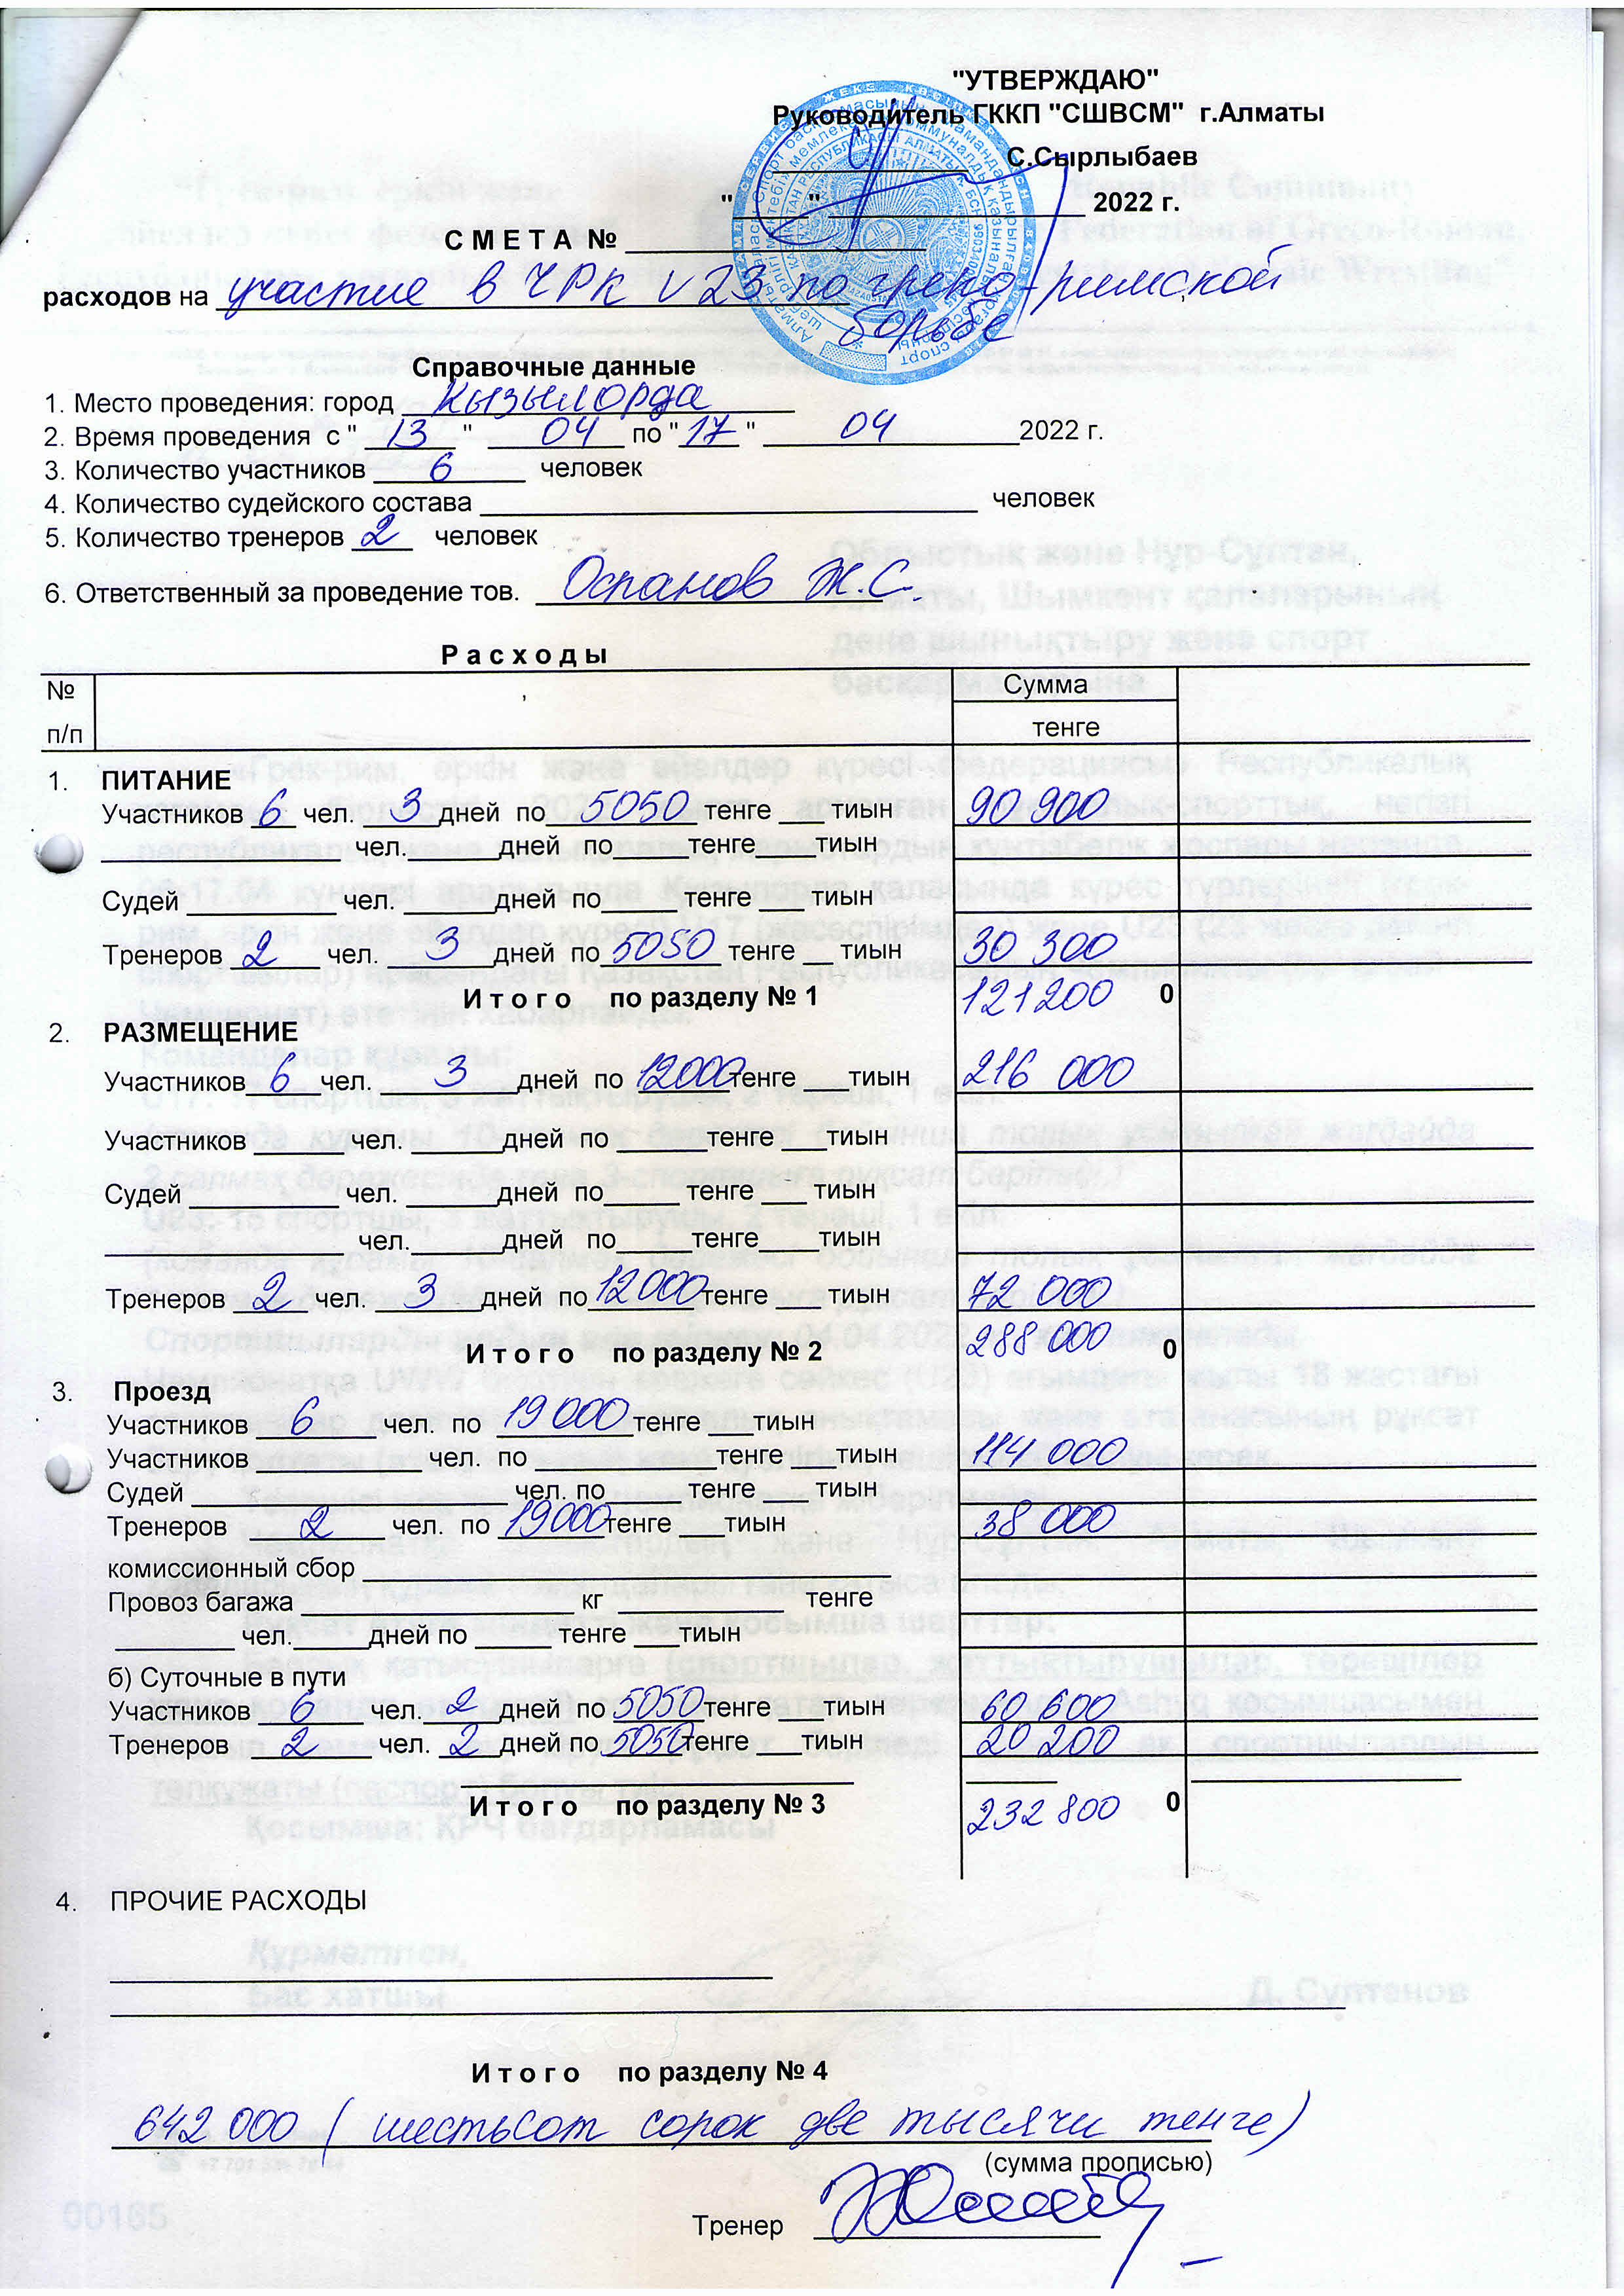 "УТВЕРЖДАЮ"
Руководитель ГККП "СШВСМ" г.Алматы
С.Сырлыбаев
"_____" _________________ 2022 г.
С М Е Т А № ____________________
расходов на участие в ЧРК U 23 по греко-римской
борьбе
Справочные данные
1. Место проведения: город Кызылорда
2. Время проведения с " 13 " 04 по " 17 " 04 2022 г.
3. Количество участников 6 человек
4. Количество судейского состава _________________ человек
5. Количество тренеров 2 человек
6. Ответственный за проведение тов. Оспанов Ж.С.
Р а с х о д ы
№ п/п Сумма
тенге
1. ПИТАНИЕ
Участников 6 чел. 3 дней по 5050 тенге ___ тиын 90 900
_________________ чел.______дней по_____тенге____тиын
Судей __________ чел. ______дней по_____ тенге ___ тиын
Тренеров 2 чел. 3 дней по 5050 тенге __ тиын 30 300
И т о г о по разделу № 1 121200 0
2. РАЗМЕЩЕНИЕ
Участников 6 чел. 3 дней по 12000 тенге ___тиын 216 000
Участников ______чел. ______дней по ______тенге ___тиын
Судей __________ чел. ______дней по_____ тенге ___ тиын
________________ чел.______дней по_____тенге____тиын
Тренеров 2 чел. 3 дней по 12000 тенге ___ тиын 72 000
И т о г о по разделу № 2 288 000 0
3. Проезд
Участников 6 чел. по 19 000 тенге ___тиын
Участников ___________ чел. по ____________тенге ___тиын 114 000
Судей _____________________ чел. по_____ тенге ___ тиын
Тренеров 2 чел. по 19000 тенге ___тиын 38 000
комиссионный сбор ___________________________________
Провоз багажа __________________ кг ___________ тенге
________ чел._____дней по _____ тенге ___тиын
б) Суточные в пути
Участников 6 чел. 2 дней по 5050 тенге ___тиын 60 600
Тренеров 2 чел. 2 дней по 5050 тенге ___тиын 20 200
И т о г о по разделу № 3 232 800 0
4. ПРОЧИЕ РАСХОДЫ
И т о г о по разделу № 4
642 000 ( шестьсот сорок две тысячи тенге)
(сумма прописью)
Тренер